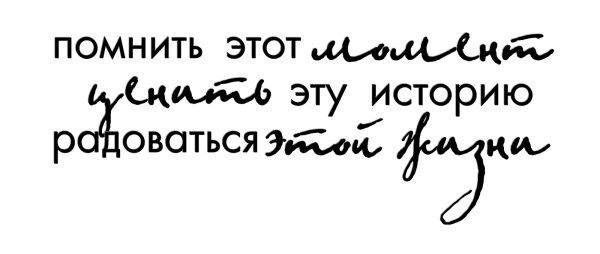 помнить этот момент
ценить эту историю
радоваться этой жизни